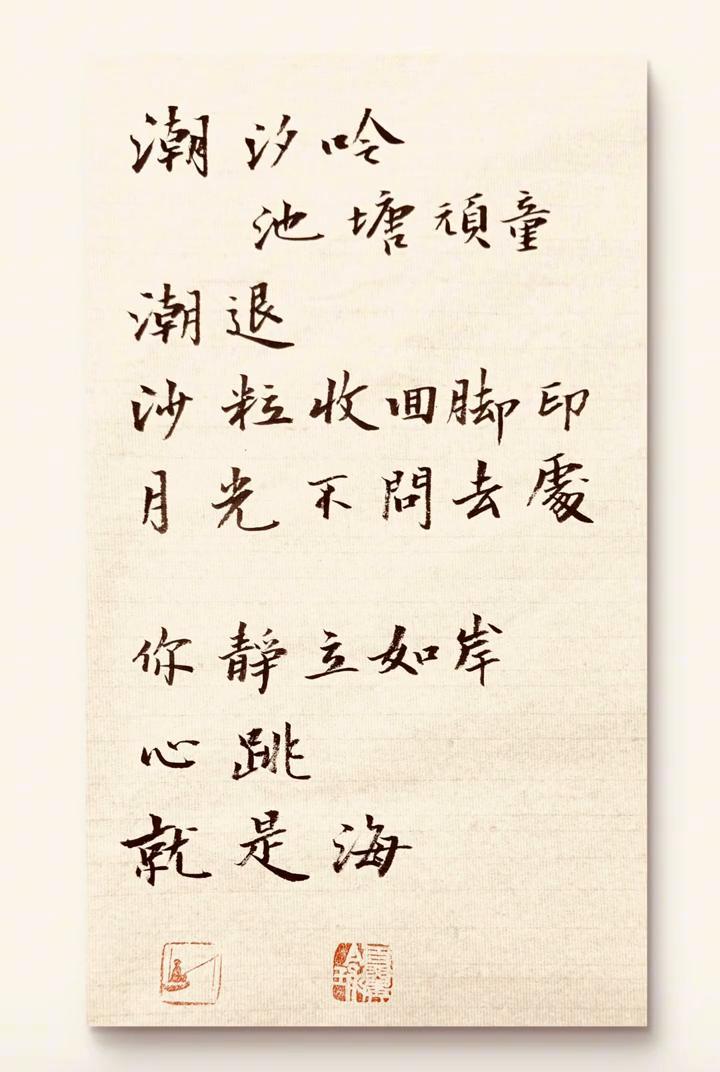 潮汐吟
池塘頑童
潮退
沙粒收回脚印
月光不問去處
你靜立如岸
心跳
就是海